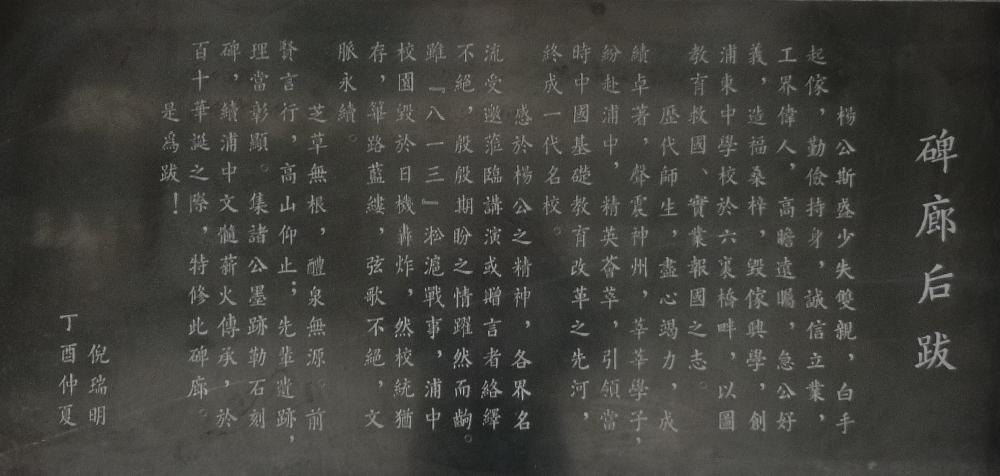 碑廊后跋
楊公斯盛少失雙親，白手
起傢，勤儉持身，誠信立業，
工界偉人，高瞻遠矚，急公好
義，造福桑梓，毀傢興學，創
浦東中學校於六裏橋畔，以圖
教育救國、實業報國之志。
歷代師生，盡心竭力，成
績卓著，聲震神州，莘莘學子，
紛赴浦中，精英薈萃，引領當
時中國基礎教育改革之先河，
終成一代名校。
感於楊公之精神，各界名
流受邀蒞臨講演或贈言者絡繹
不絕，殷殷期盼之情躍然而齣。
雖『八一三』淞滬戰事，浦中
校園毀於日機轟炸，然校統猶
存，篳路藍縷，弦歌不絕，文
脈永續。
芝草無根，醴泉無源。前
賢言行，高山仰止；先輩遺跡，
理當彰顯。集諸公墨跡勒石刻
碑，續浦中文髓薪火傳承，於
百十華誕之際，特修此碑廊。
是爲跋！
倪瑞明
丁酉仲夏